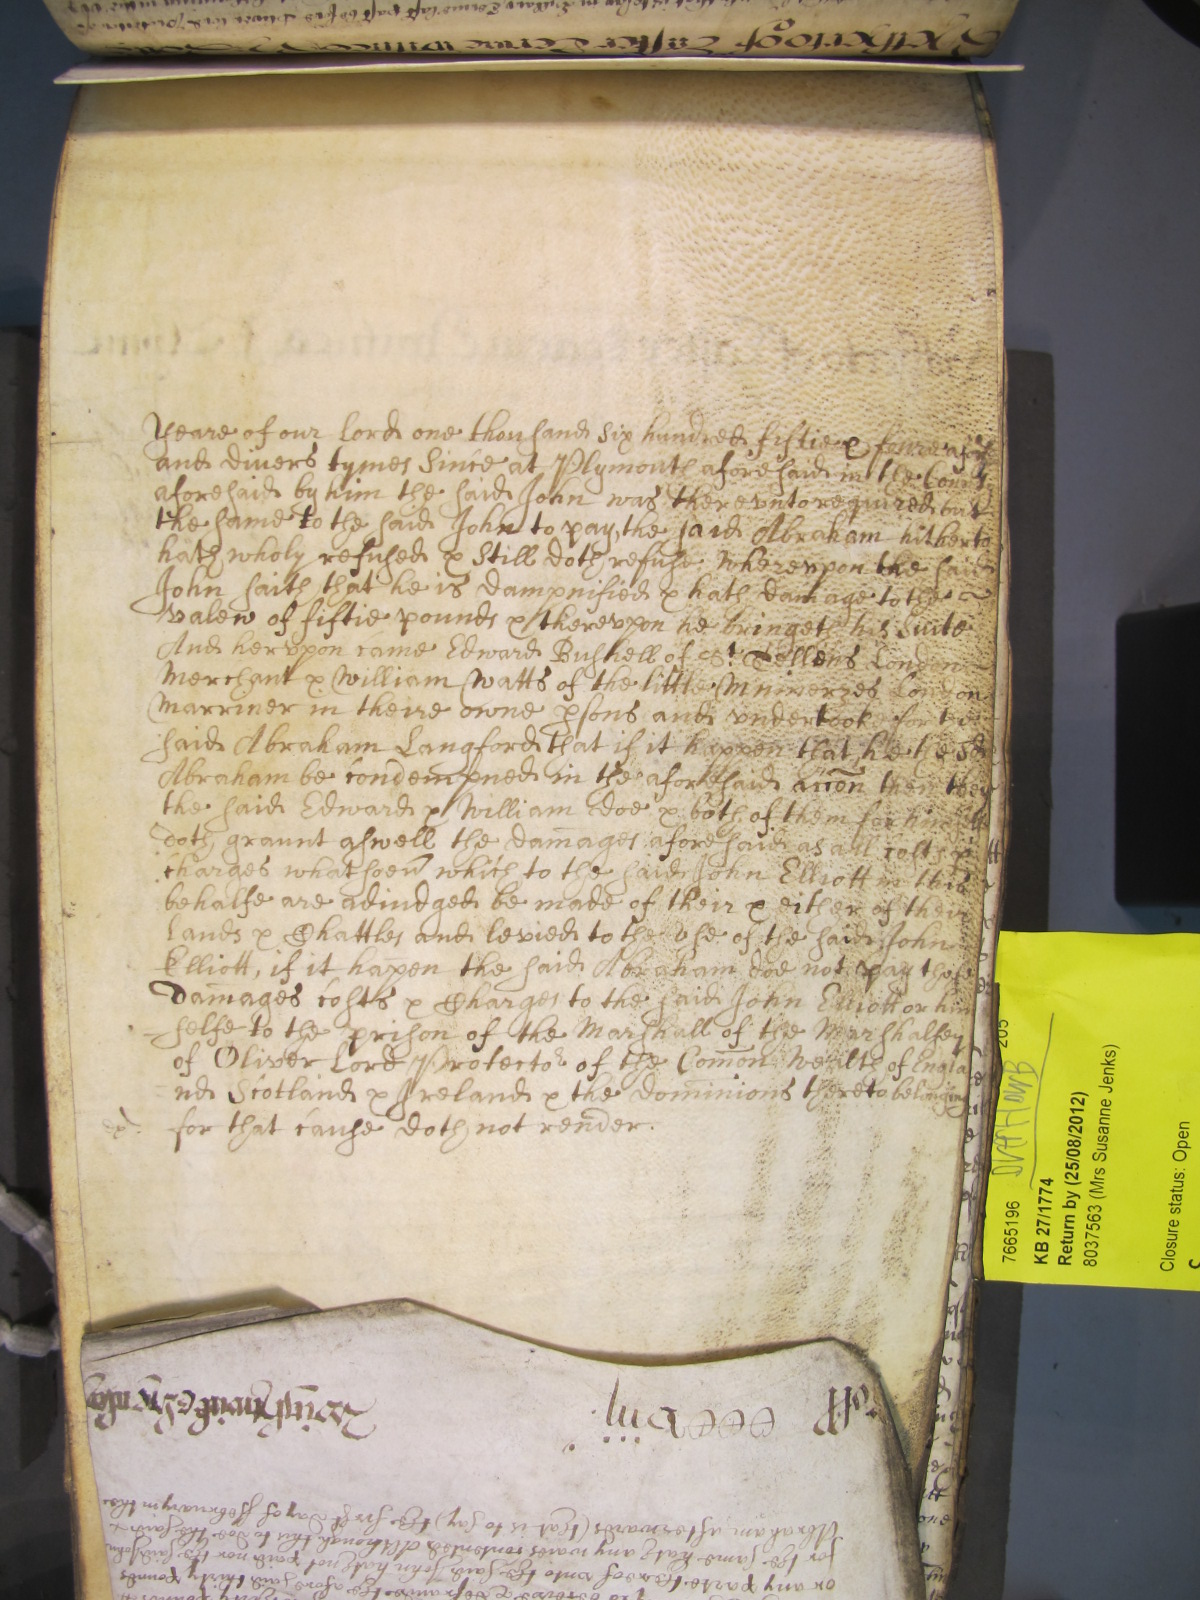 Yeare of our Lord one thousand six hundred fiftie & foure
and divers tymes since at Plymouth aforesaid in the County
aforesaid by him the said John was therevnto required but
the same to the said John to pay the said Abraham hitherto
hath wholy refused & still doth refuse Wherevpon the said
John saith that he is dampnified & hath damage to the
valew of fiftie pounds & therevpon he bringeth his Suite
And hervpon came Edward Bushell of St Hellens London
Merchant & William Watts of the little Mninerzes London
Marriner in theire owne psons and vndertook for the
said Abraham Langford that if it happen that he the sd
Abraham be condempned in the aforesaid accon then they
the said Edward & William doe & both of them for himself
doth graunt aswell the damages aforesaid as all costs &
charges whatsoeu which to the said John Elliott in this
behalfe are adiudged be made of their & either of their
lands & Chattles and levied to the vse of the said John
Elliott, if it hapen the said Abraham doe not pay those
Damages costs & Charges to the said John Elliott or him
selfe to the prison of the Marshall of the Marshalsey
of Oliver Lord Protector of the Comon Wealth of Engla
nd Scotland & Ireland & the dominions thereto belonging
for that cause doth not render.
7665196 205
KB 27/1774
Return by (25/08/2012)
8037563 (Mrs Susanne Jenks)
Closure status: Open
Abraham afterwards (that is to say) the first day of February in the
for the same hath any waies contented Although this to doe the said
or any parte thereof vnto the said John hath not paid nor the said John